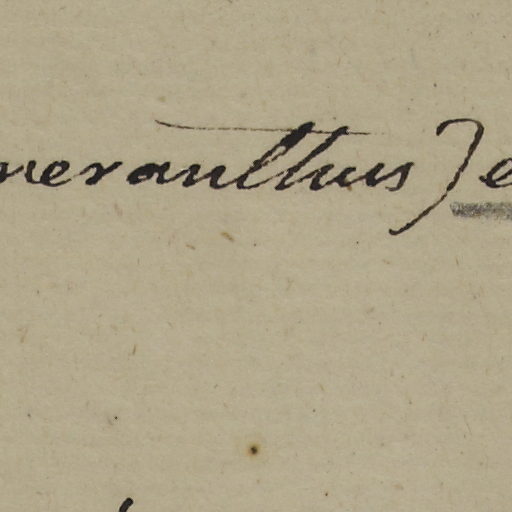 neranthus) e